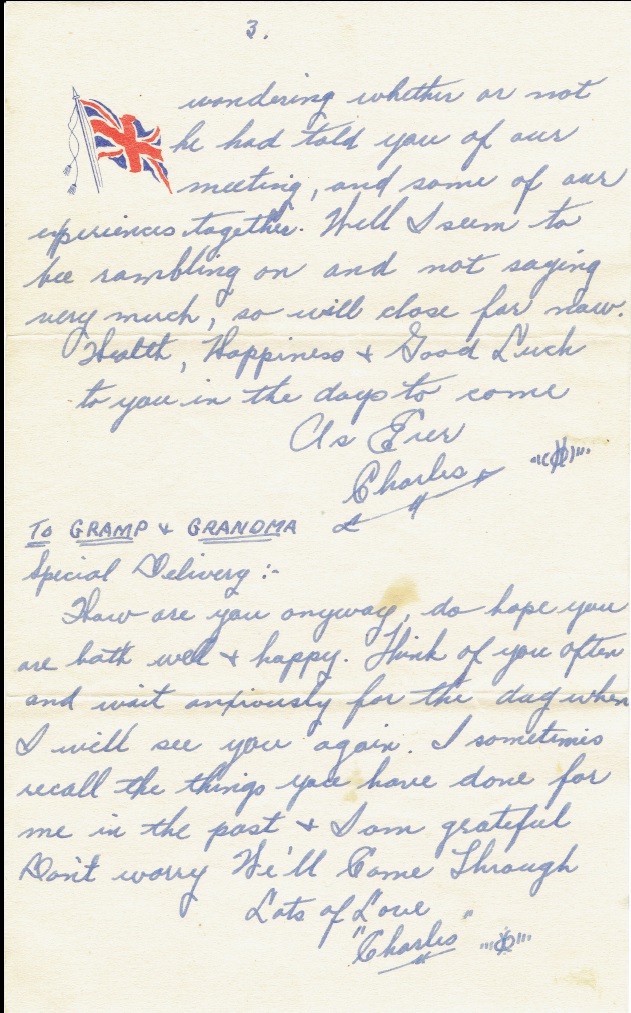 3.
wondering whether or not
he had told you of our
meeting, and some of our
experiences together. Well I seem to
bee rambling on and not saying
very much, so will close for now.
Health, Happiness + Good Luck
to you in the days to come
As Ever
Charles
TO GRAMP & GRANDMA
Special Delivery :-
How are you anyway, do hope you
are both well + happy. Think of you often
and wait anxiously for the day when
I will see you again. I sometimes
recall the things you have done for
me in the past + I am grateful
Don't worry We'll Come Through
Lots of Love
"Charles"